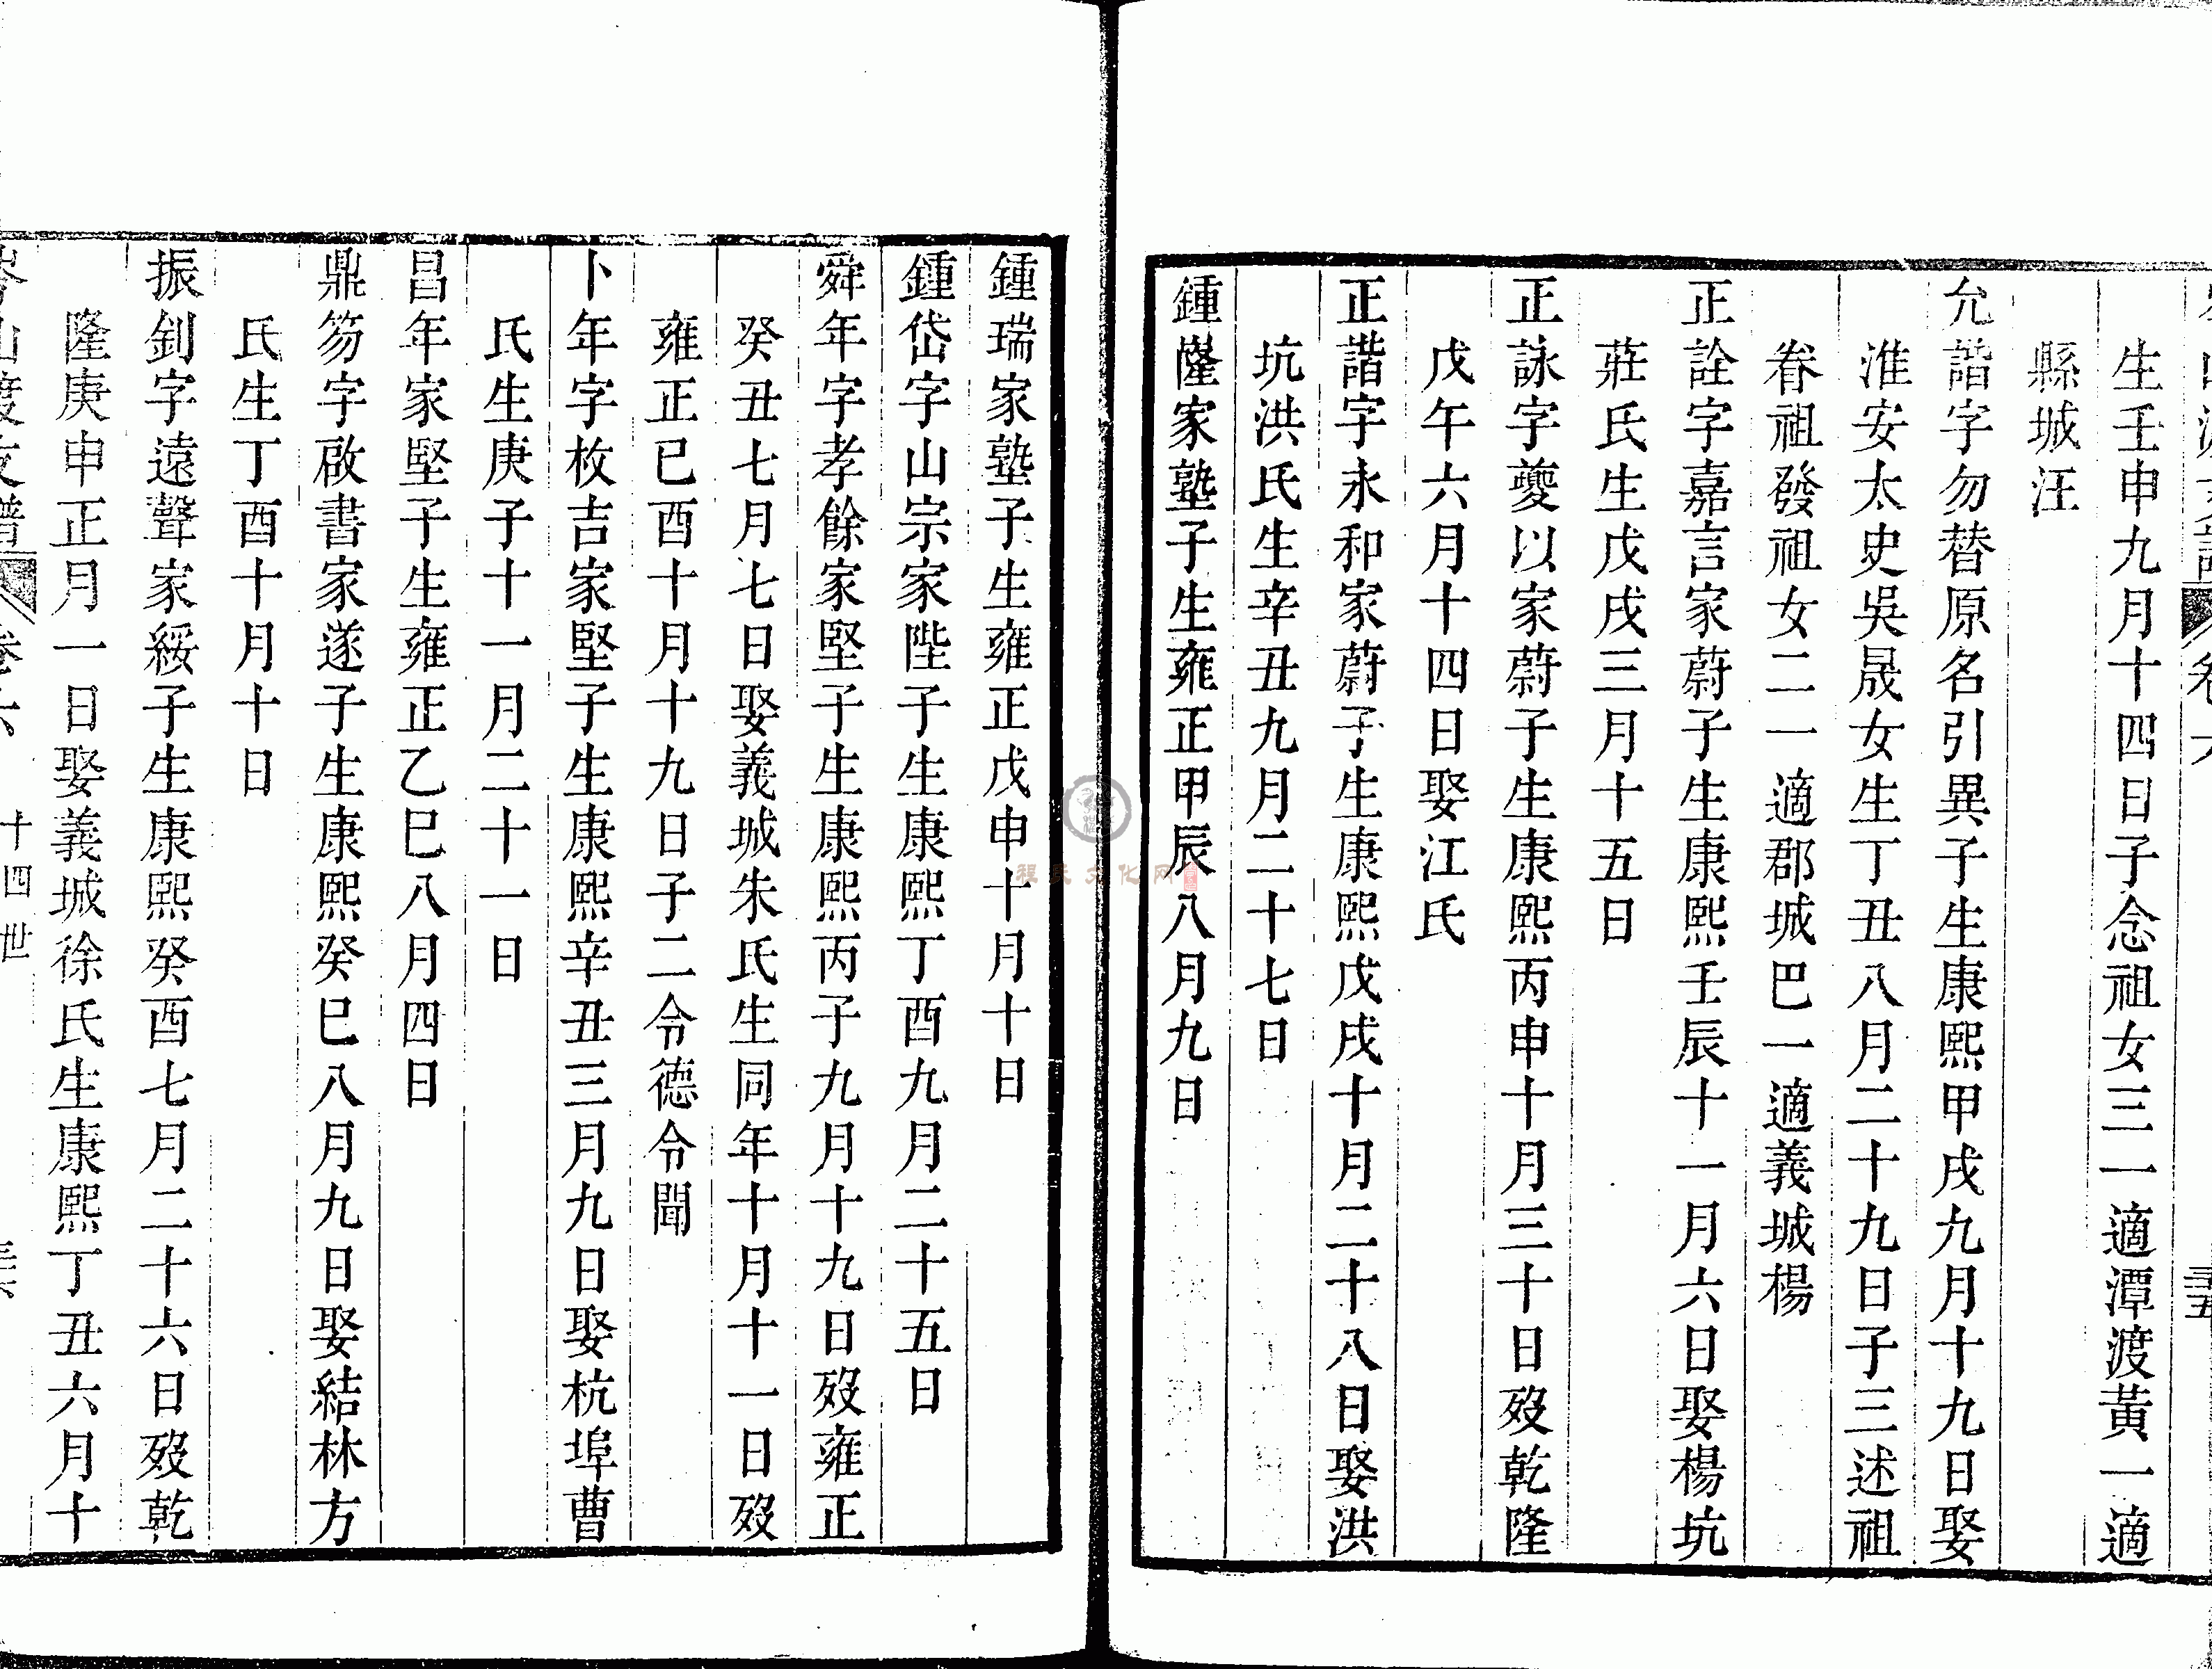 生壬申九月十四日子念祖女三一適潭渡黃一適
縣城汪
允諧字勿替原名引異子生康熙甲戌九月十九日娶
淮安太史吳晟女生丁丑八月二十九日子三述祖
眷祖發祖女二一適郡城巴一適義城楊
正詮字嘉言家蔚子生康熙壬辰十一月六日娶楊坑
莊氏生戊戌三月十五日
正詠字夔以家蔚子生康熙丙申十月三十日歿乾隆
戊午六月十四日娶江氏
正諧字永和家蔚子生康熙戊戌十月二十八日娶洪
坑洪氏生辛丑九月二十七日
鍾㠥家塾子生雍正甲辰八月九日
卷六
三五
鍾瑞家塾子生雍正戊申十月十日
鍾岱字山宗家陛子生康熙丁酉九月二十五日
舜年字孝餘家堅子生康熙丙子九月十九日歿雍正
癸丑七月七日娶義城朱氏生同年十月十一日歿
雍正已酉十月十九日子二令德令聞
卜年字枚吉家堅子生康熙辛丑三月九日娶杭埠曹
氏生庚子十一月二十一日
昌年家堅子生雍正乙巳八月四日
鼎笏字啟書家遂子生康熙癸巳八月九日娶結林方
氏生丁酉十月十日
振釗字遠聲家綏子生康熙癸酉七月二十六日歿乾
隆庚申正月一日娶義城徐氏生康熙丁丑六月十
山渡文譜
卷六
十四世
三六
程氏文化网